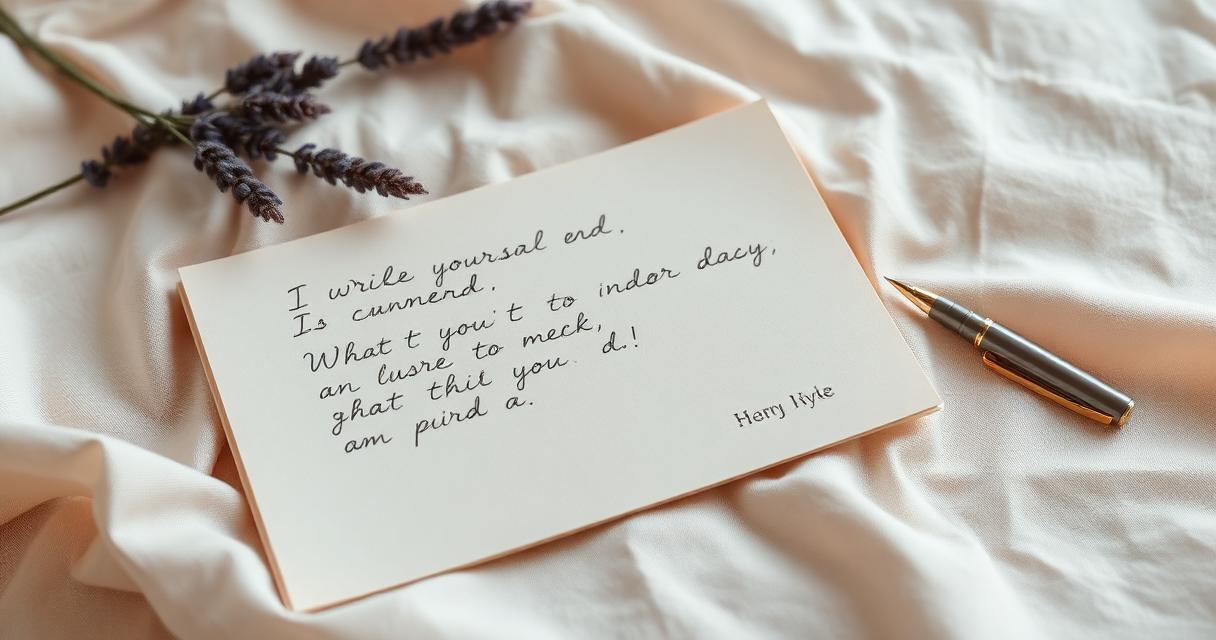 I wrile yoursal end.
Is cunmend.
What t you't to indor dacy,
an lusre to meck,
ghat thil you d.!
am purd a.
Herry Hyle